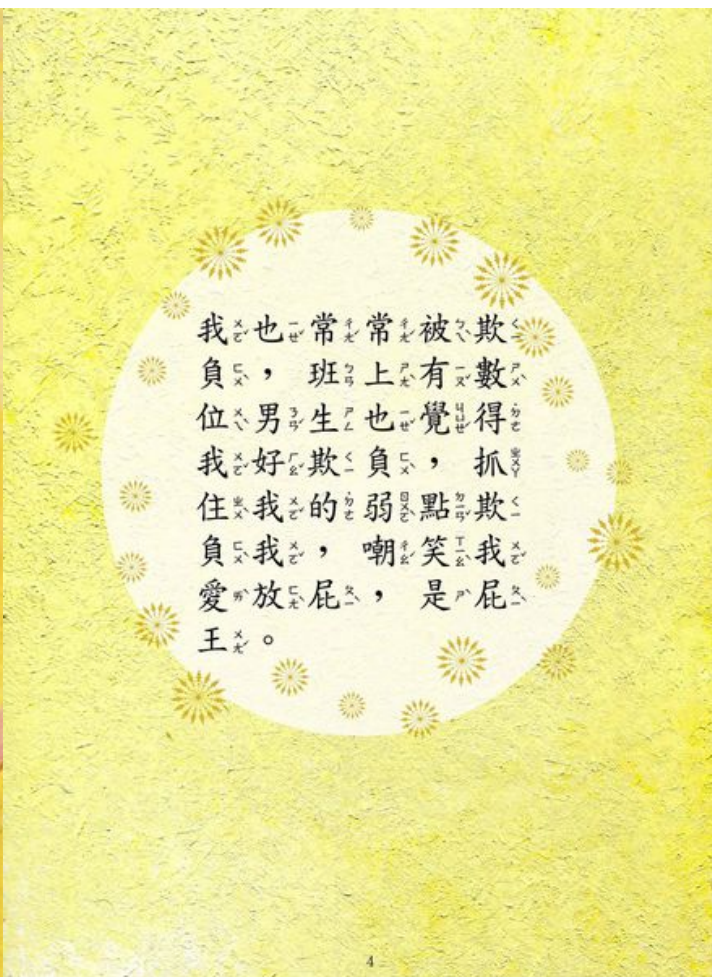 我也常常被欺
負，班上有數
位男生也覺得
我好欺負，抓
住我的弱點欺
負我，嘲笑我
愛放屁，是屁
王。
4